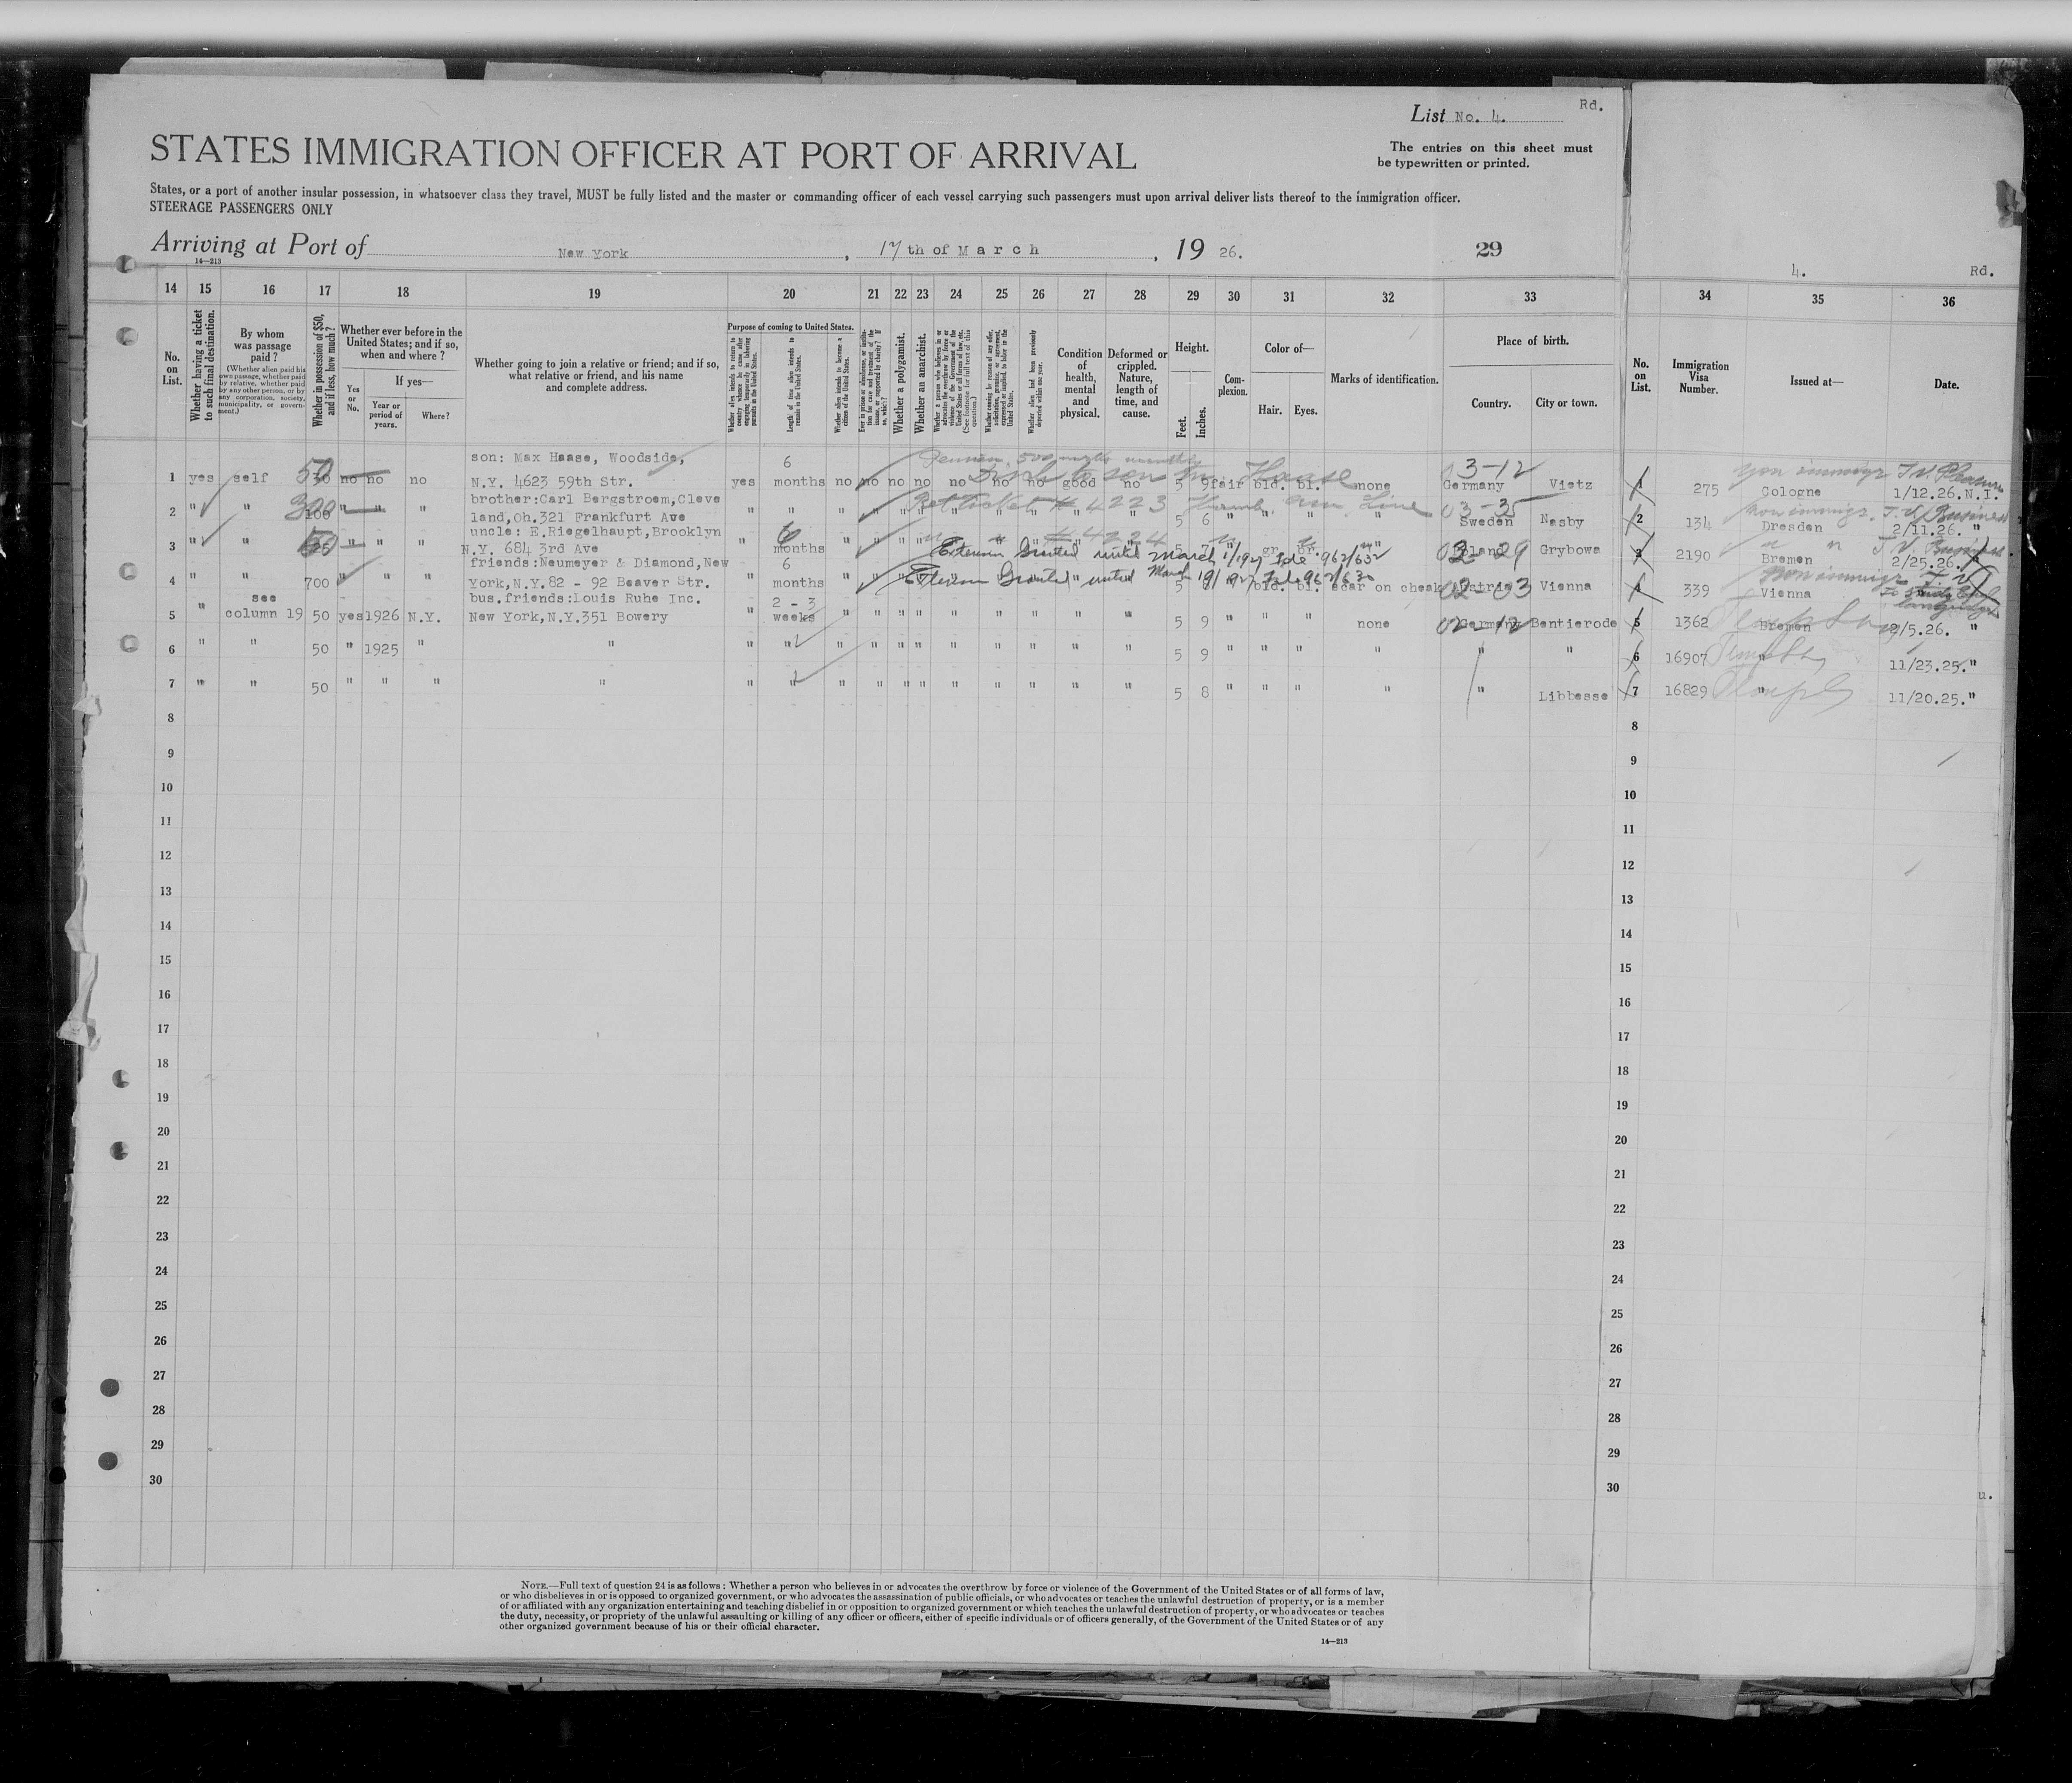 List No. 4. Rd.
STATES IMMIGRATION OFFICER AT PORT OF ARRIVAL
The entries on this sheet must
be typewritten or printed.
States, or a port of another insular possession, in whatsoever class they travel, MUST be fully listed and the master or commanding officer of each vessel carrying such passengers must upon arrival deliver lists thereof to the immigration officer.
STEERAGE PASSENGERS ONLY
Arriving at Port of New York, 17th of March, 19 26. 29
14—213
4. Rd.
14 15 16 17 18 19 20 21 22 23 24 25 26 27 28 29 30 31 32 33 34 35 36
No. on List.
Whether having a ticket to such final destination.
By whom was passage paid?
(Whether alien paid his own passage, whether paid by relative, whether paid by any other person, or by any corporation, society, municipality, or government.)
Whether in possession of $50, and if less, how much?
Whether ever before in the United States; and if so, when and where?
Yes or No.
If yes—
Year or period of years.
Where?
Whether going to join a relative or friend; and if so, what relative or friend, and his name and complete address.
Purpose of coming to United States.
Whether alien intends to return to country whence he came after engaging temporarily in laboring pursuits in the United States.
Length of time alien intends to remain in the United States.
Whether alien intends to become a citizen of the United States.
Whether a polygamist.
Whether an anarchist.
Whether alien had been previously deported within one year.
Condition of health, mental and physical.
Deformed or crippled. Nature, length of time, and cause.
Height.
Feet.
Inches.
Complexion.
Color of—
Hair.
Eyes.
Marks of identification.
Place of birth.
Country.
City or town.
No. on List.
Immigration Visa Number.
Issued at—
Date.
son: Max Haase, Woodside,
1 yes self 50 no no no N.Y. 4623 59th Str. yes 6 months no no no no no no no good no 5 9 fair bld. bl. none 3-12 Germany Vietz 1 275 Cologne 1/12.26. N.I.
brother:Carl Bergstroem,Cleve
2 " " 300 100 " " " land,Oh.321 Frankfurt Ave " " " " " " " " " " " 5 6 " " " " 03-35 Sweden Nasby 2 134 Dresden 2/11.26. "
# 4223
uncle: E.Riegelhaupt,Brooklyn
3 " " " " " N.Y. 684 3rd Ave " 6 months " " " " " " " " " 5 7 " gr. br. " Grybowa 3 2190 Bremen 2/25.26.
# 4224
Extension Granted until March 1/1927
friends:Neumeyer & Diamond,New
4 " " 700 " " " York,N.Y.82 - 92 Beaver Str. " 6 months " " " " bld. bl. scar on cheak 02-03 Vienna 4 339 Vienna
Extension Granted until March
see
bus.friends:Louis Ruhe Inc.
5 " column 19 50 yes 1926 N.Y. New York,N.Y.351 Bowery " 2 - 3 weeks " " " " " " " " " 5 9 " " " none 02-12 Germany Bentierode 5 1362 Bremen 2/5.26. "
6 " " 50 " 1925 " " " " " " " " " " " " " 5 9 " " " " " " 6 16907 " 11/23.25. "
7 " " 50 " " " " " " " " " " " " " " " 5 8 " " " " " Libbesse 7 16829 " 11/20.25. "
8 8
9 9
10 10
11 11
12 12
13 13
14 14
15 15
16 16
17 17
18 18
19 19
20 20
21 21
22 22
23 23
24 24
25 25
26 26
27 27
28 28
29 29
30 30
NOTE.—Full text of question 24 is as follows: Whether a person who believes in or advocates the overthrow by force or violence of the Government of the United States or of all forms of law,
or who disbelieves in or is opposed to organized government, or who advocates the assassination of public officials, or who advocates or teaches the unlawful destruction of property, or is a member
of or affiliated with any organization entertaining and teaching disbelief in or opposition to organized government or which teaches the unlawful destruction of property, or who advocates or teaches
the duty, necessity, or propriety of the unlawful assaulting or killing of any officer or officers, either of specific individuals or of officers generally, of the Government of the United States or of any
other organized government because of his or their official character.
14—213